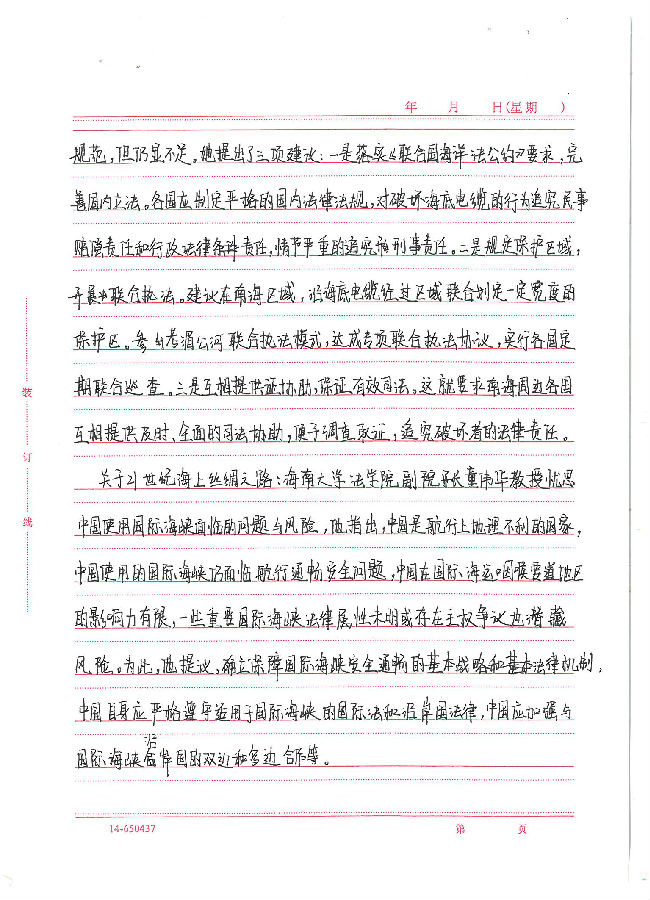 年 月 日(星期 )
规范,但仍显不足。他提出了三项建议:一是落实《联合国海洋法公约》要求,完
善国内立法。各国应制定严格的国内法律法规,对破坏海底电缆的行为追究民事
赔偿责任和行政法律条件责任,情节严重的追究和刑事责任。二是规定保护区域,
开展联合执法。建议在南海区域,沿海底电缆经过区域联合划定一定宽度的
保护区。参考湄公河联合执法模式,达成专项联合执法协议,实行各国定
期联合巡查。三是互相提供证协助,保证有效司法。这就要求南海周边各国
互相提供及时、全面的司法协助,便于调查取证,追究破坏者的法律责任。
关于21世纪海上丝绸之路:海南大学法学院副院长童伟华教授忧思
中国使用国际海峡面临的问题与风险,他指出,中国是航行上地理不利的国家,
中国使用的国际海峡仍面临航行通畅安全问题,中国在国际海运咽喉要道地区
的影响力有限,一些重要国际海峡法律属性未明或存在主权争议也潜藏
风险。为此,他提议,确立保障国际海峡安全通畅的基本战略和基本法律机制,
中国自身应严格遵守适用于国际海峡的国际法和沿岸国法律,中国应加强与
国际海峡沿岸国的双边和多边合作等。
装
订
线
14-650437 第 页